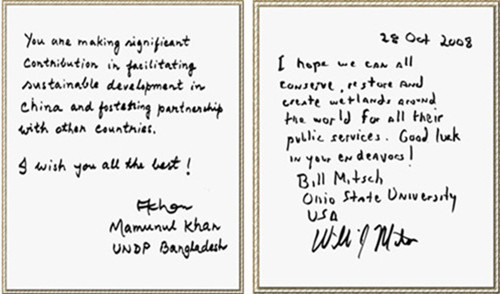 You are making significant
Contribution in facilitating
sustainable development in
China and fostering partnership
with other countries.
I wish you all the best!
Khan
Mamunul Khan
UNDP Bangladesh
28 Oct 2008
I hope we can all
conserve, restore and
create wetlands around
the world for all their
public services. Good luck
in your endeavors!
Bill Mitsch
Ohio State University
USA